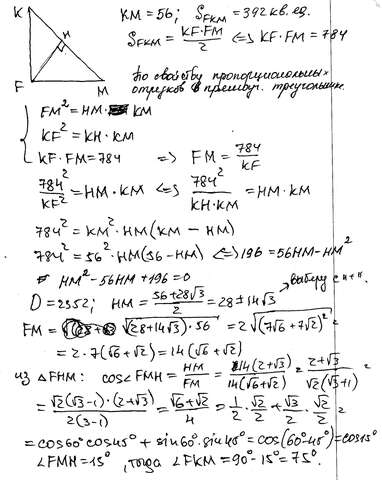 K
H
F
M
KM = 56; S_FKM = 392 кв. ед.
S_FKM = KF·FM/2 <=> KF·FM = 784
По свойству пропорциональных
отрезков в прямоуг. треугольник.
FM² = HM·KM
KF² = KH·KM
KF·FM = 784 => FM = 784/KF
784²/KF² = HM·KM <=> 784²/(KH·KM) = HM·KM
784² = KM²·HM(KM - HM)
784² = 56²·HM(56 - HM) <=> 196 = 56HM - HM²
HM² - 56HM + 196 = 0
выберу с "+".
D = 2352; HM = (56 + 28√3)/2 = 28 ± 14√3
FM = √((28 + 14√3)·56) = 2√(7√6 + 7√2)² =
= 2·7(√6 + √2) = 14(√6 + √2)
из △FHM: cos∠FMH = HM/FM = 14(2+√3)/(14(√6+√2)) = (2+√3)/(√2(√3+1)) =
= √2(√3-1)·(2+√3)/(2(3-1)) = (√6+√2)/4 = 1/2·√2/2 + √3/2·√2/2 =
= cos60°cos45° + sin60°·sin45° = cos(60°-45°) = cos15°
∠FMH = 15°, тогда ∠FKM = 90° - 15° = 75°.